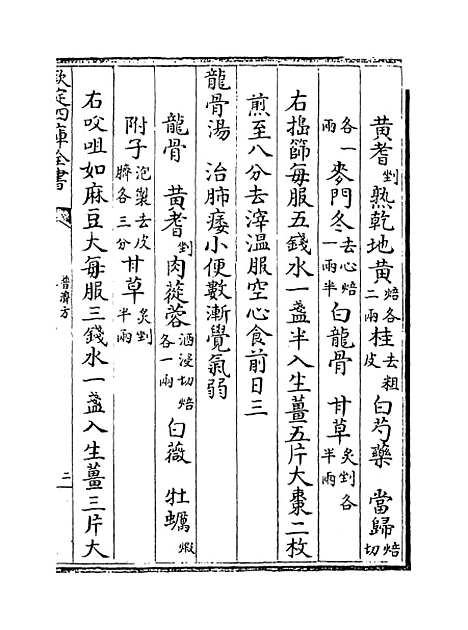 黃耆剉熟乾地黃焙各二兩桂去粗皮白芍藥當歸切焙
各一兩麥門冬去心焙一兩半白龍骨甘草炙剉各半兩
右搗篩每服五錢水一盞半入生薑五片大棗二枚
煎至八分去滓溫服空心食前日三
龍骨湯治肺痿小便數漸覺氣弱
龍骨黃耆剉肉蓯蓉酒浸切焙各一兩白薇牡蠣煆
附子泡製去皮臍各三分甘草炙剉半兩
右㕮咀如麻豆大每服三錢水一盞入生薑三片大
欽定四庫全書
普濟方